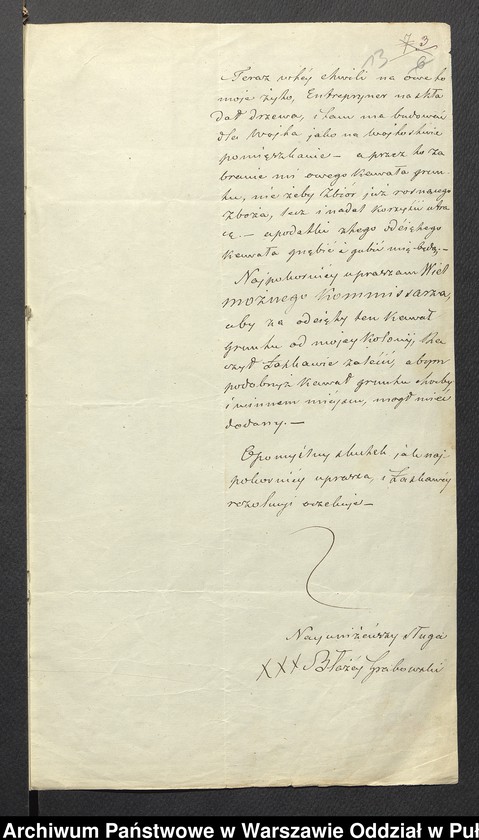 7 3
13 8
Teraz w téj chwili na owe to
moje żyto, Entrepryner na skła
dał drzewa, i tam ma budować
dla Wojska jako na wojskowie
pomięszkanie — a przez to za
branie mi owego kawała grun-
tu, nie żeby zbiór już rosnącego
zboża, lecz i nadal korzyści utra
cę. — a podatki z tego odciętego
kawała gnębić i gubić mię będą. —
Najpokorniey upraszam Wiel
możnego Kommissarza,
aby za odcięty ten kawał
gruntu od mojey Kolonij, Ra
czył Łaskawie zalécić, abym
podobnyż kawał gruntu choćby
i w innem miejscu, mógł mieć
dodany. —
O pomyślny skutek jak naj
pokorniey uprasza, i Łaskawey
rezolucyi oczekuje —
Nayuniżeńszy sługa
XXX Błażéj Grabowski
Archiwum Państwowe w Warszawie Oddział w Puł